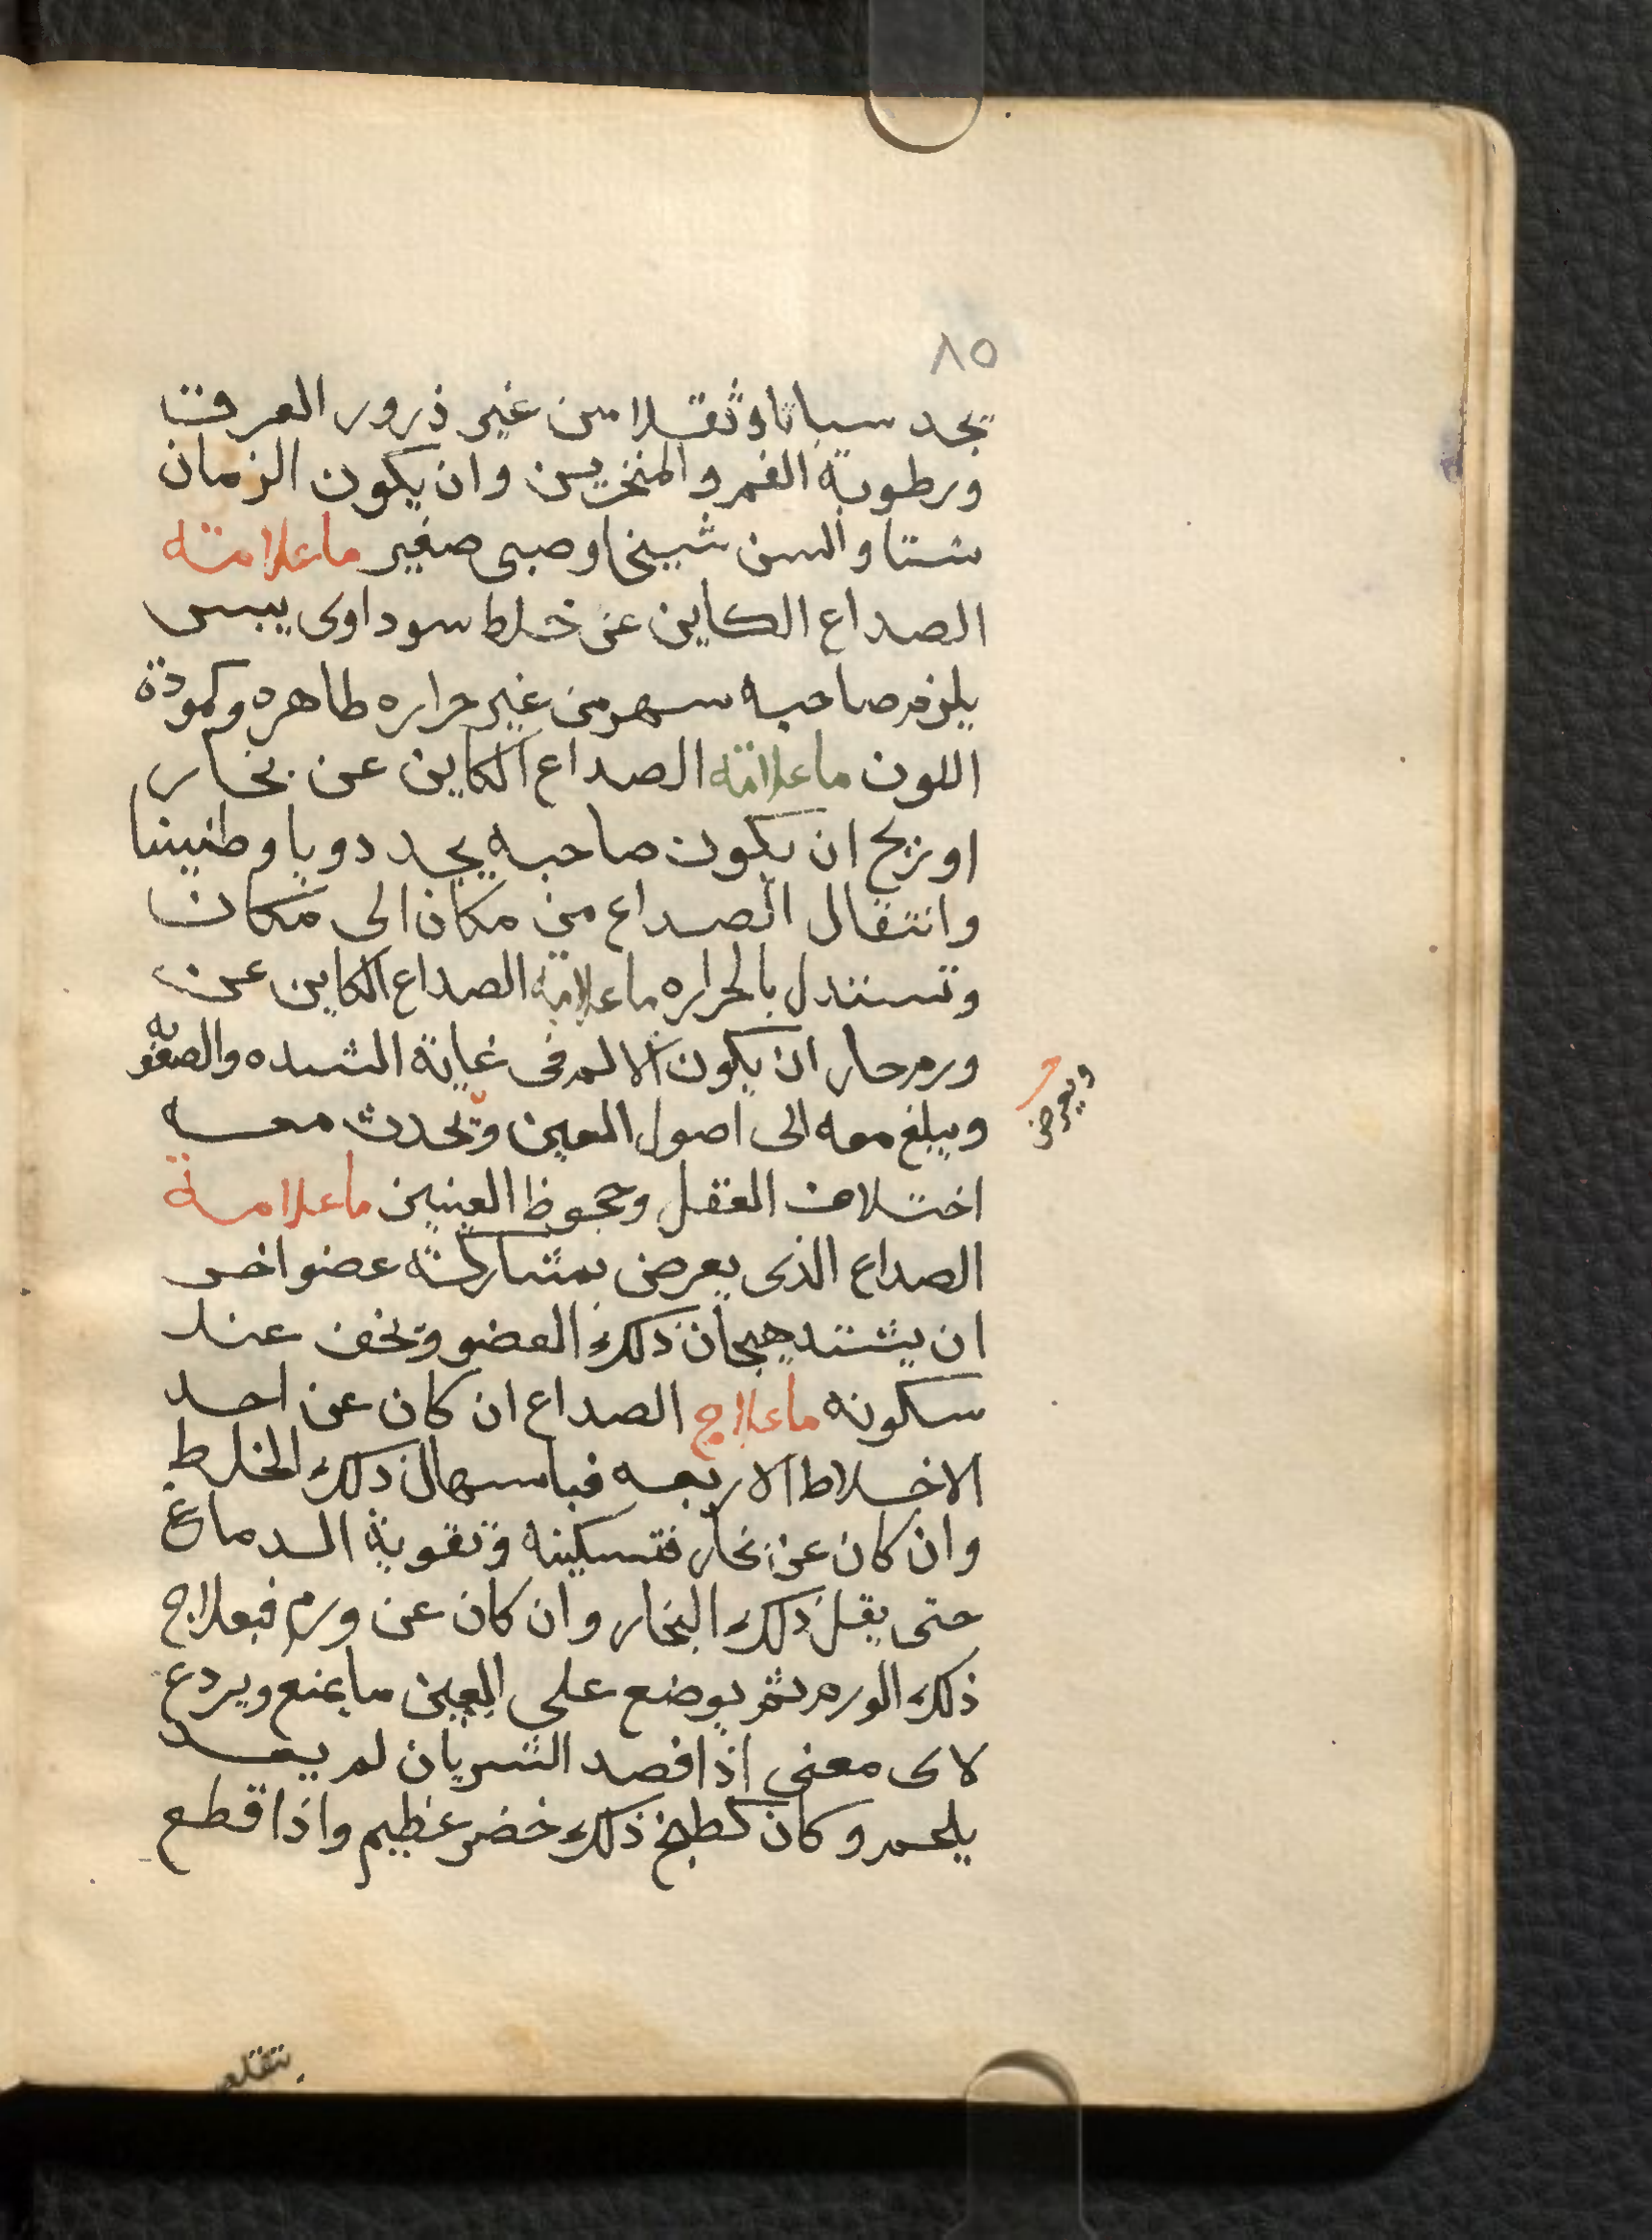 ٨٥
تجد سباتا وثقلا من غير ذرور العرق
ورطوبة الفم والمنخرين وان يكون الزمان
شتا والسن شيخا او صبى صغير ما علامته
الصداع الكاين عن خلط سوداوى يبس
يلزم صاحبه سهر من غير حراره طاهره وكمودة
اللون ما علامة الصداع الكاين عن بخار
او ريح ان يكون صاحبه يجد دويا وطنينا
وانتقال الصداع من مكان الى مكان
وتستدل بالحراره ما علامة الصداع الكاين عن
ورم حار ان يكون الالم فى غاية الشده والصعوبه
ويعرض
ويبلغ معه الى اصول العين وتحدث معه
اختلاف العقل وجحوظ العينين ما علامة
الصداع الذى يعرض بمشاركة عضو اخر
ان يشتد هيجان ذلك العضو وتخف عند
سكونه ما علاج الصداع ان كان عن احد
الاخلاط الاربعه فباسهال ذلك الخلط
وان كان عن بخار فتسكينه وتقوية الدماغ
حتى يقل ذلك البخار وان كان عن ورم فبعلاج
ذلك الورم ثم يوضع على العين ما يمنع ويردع
لاى معنى اذا فصد الشريان لم يعد
يلحم وكان ذلك خضر عظيم واذا قطع